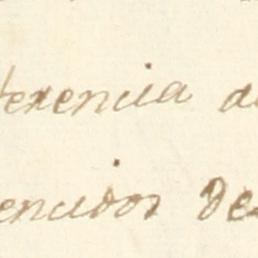 erencia d
encidos de